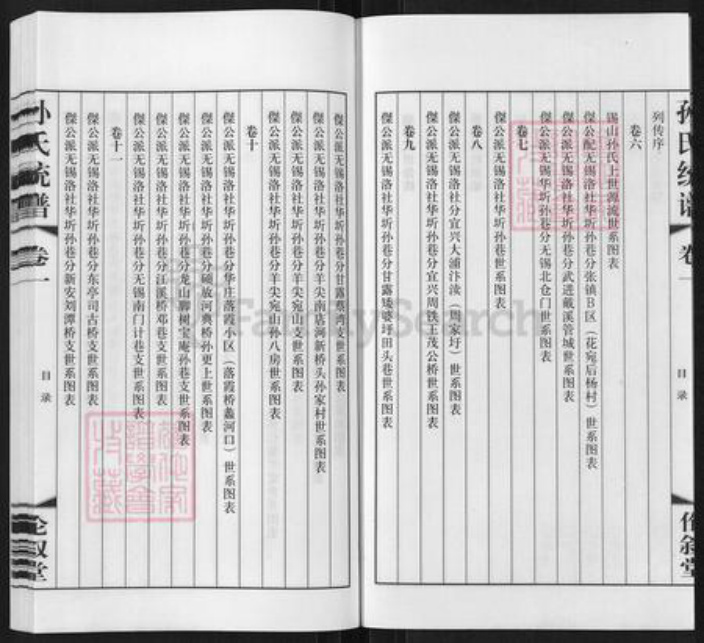 孙氏统谱 卷一 目录 伦叙堂
列传序
卷六
锡山孙氏上世源流世系图表
傑公配无锡洛社华圻孙巷分张镇B区（花宛后杨村）世系图表
傑公派无锡洛社华圻孙巷分武进戴溪管城世系图表
傑公派无锡华圻孙巷分无锡北仓门世系图表
卷七
傑公派无锡洛社华圻孙巷世系图表
卷八
傑公派无锡洛社分宜兴大浦汴渎（周家圩）世系图表
傑公派无锡洛社华圻孙巷分宜兴周铁王茂公桥世系图表
卷九
傑公派无锡洛社华圻孙巷分甘露矮婆圩田头巷世系图表
傑公派无锡洛社华圻孙巷分甘露蔡湾支世系图表
傑公派无锡洛社华圻孙巷分羊尖南店河新桥头孙家村世系图表
傑公派无锡洛社华圻孙巷分羊尖宛山支世系图表
傑公派无锡洛社华圻孙巷分羊尖宛山孙八房世系图表
卷十
傑公派无锡洛社华圻孙巷分华庄落霞小区（落霞桥蠡河口）世系图表
傑公派无锡洛社华圻孙巷分硕放河典桥孙更上世系图表
傑公派无锡洛社华圻孙巷分龙山脚树宝庵孙巷支世系图表
傑公派无锡洛社华圻孙巷分江溪桥邓巷支世系图表
傑公派无锡洛社华圻孙巷分无锡南门计巷支世系图表
卷十一
傑公派无锡洛社华圻孙巷分东亭司古桥支世系图表
傑公派无锡洛社华圻孙巷分新安刘潭桥支世系图表
孙氏统谱 卷一 目录 伦叙堂
FamilySearch